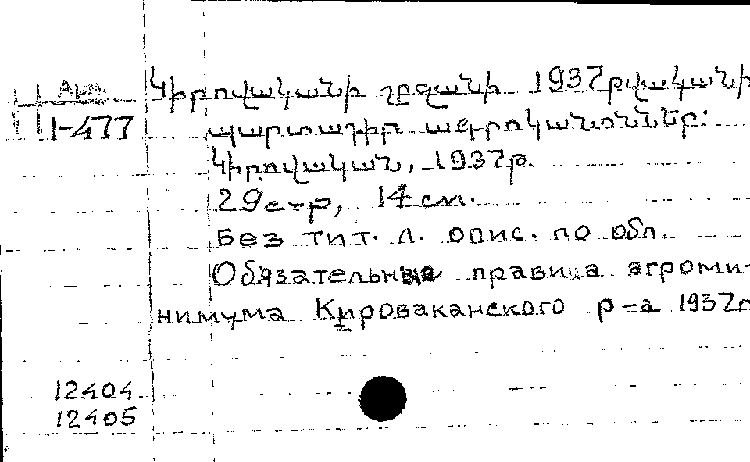 Կիրովականի շրջանի 1937թվականի
1-477 պարտադիր ագրոկանոնները:
Կիրովական, 1937թ.
29 с-р, 14 см.
Без тит. л. опис. по обл.
Обязательные правила агроми-
нимума Кироваканского р-а 1937г
12404
12405